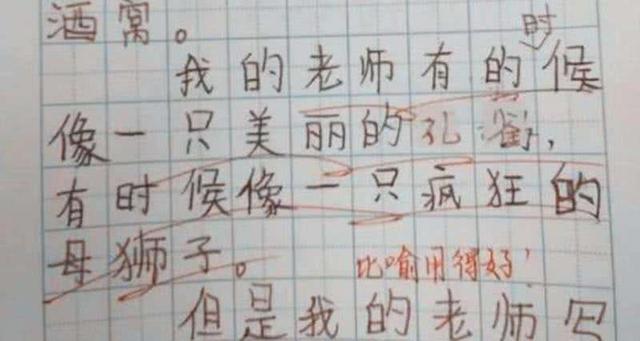 酒窝。
时
我的老师有的候
像一只美丽的孔
有时候像一只疯狂的
母狮子。
比喻用得好！
但是我的老师写